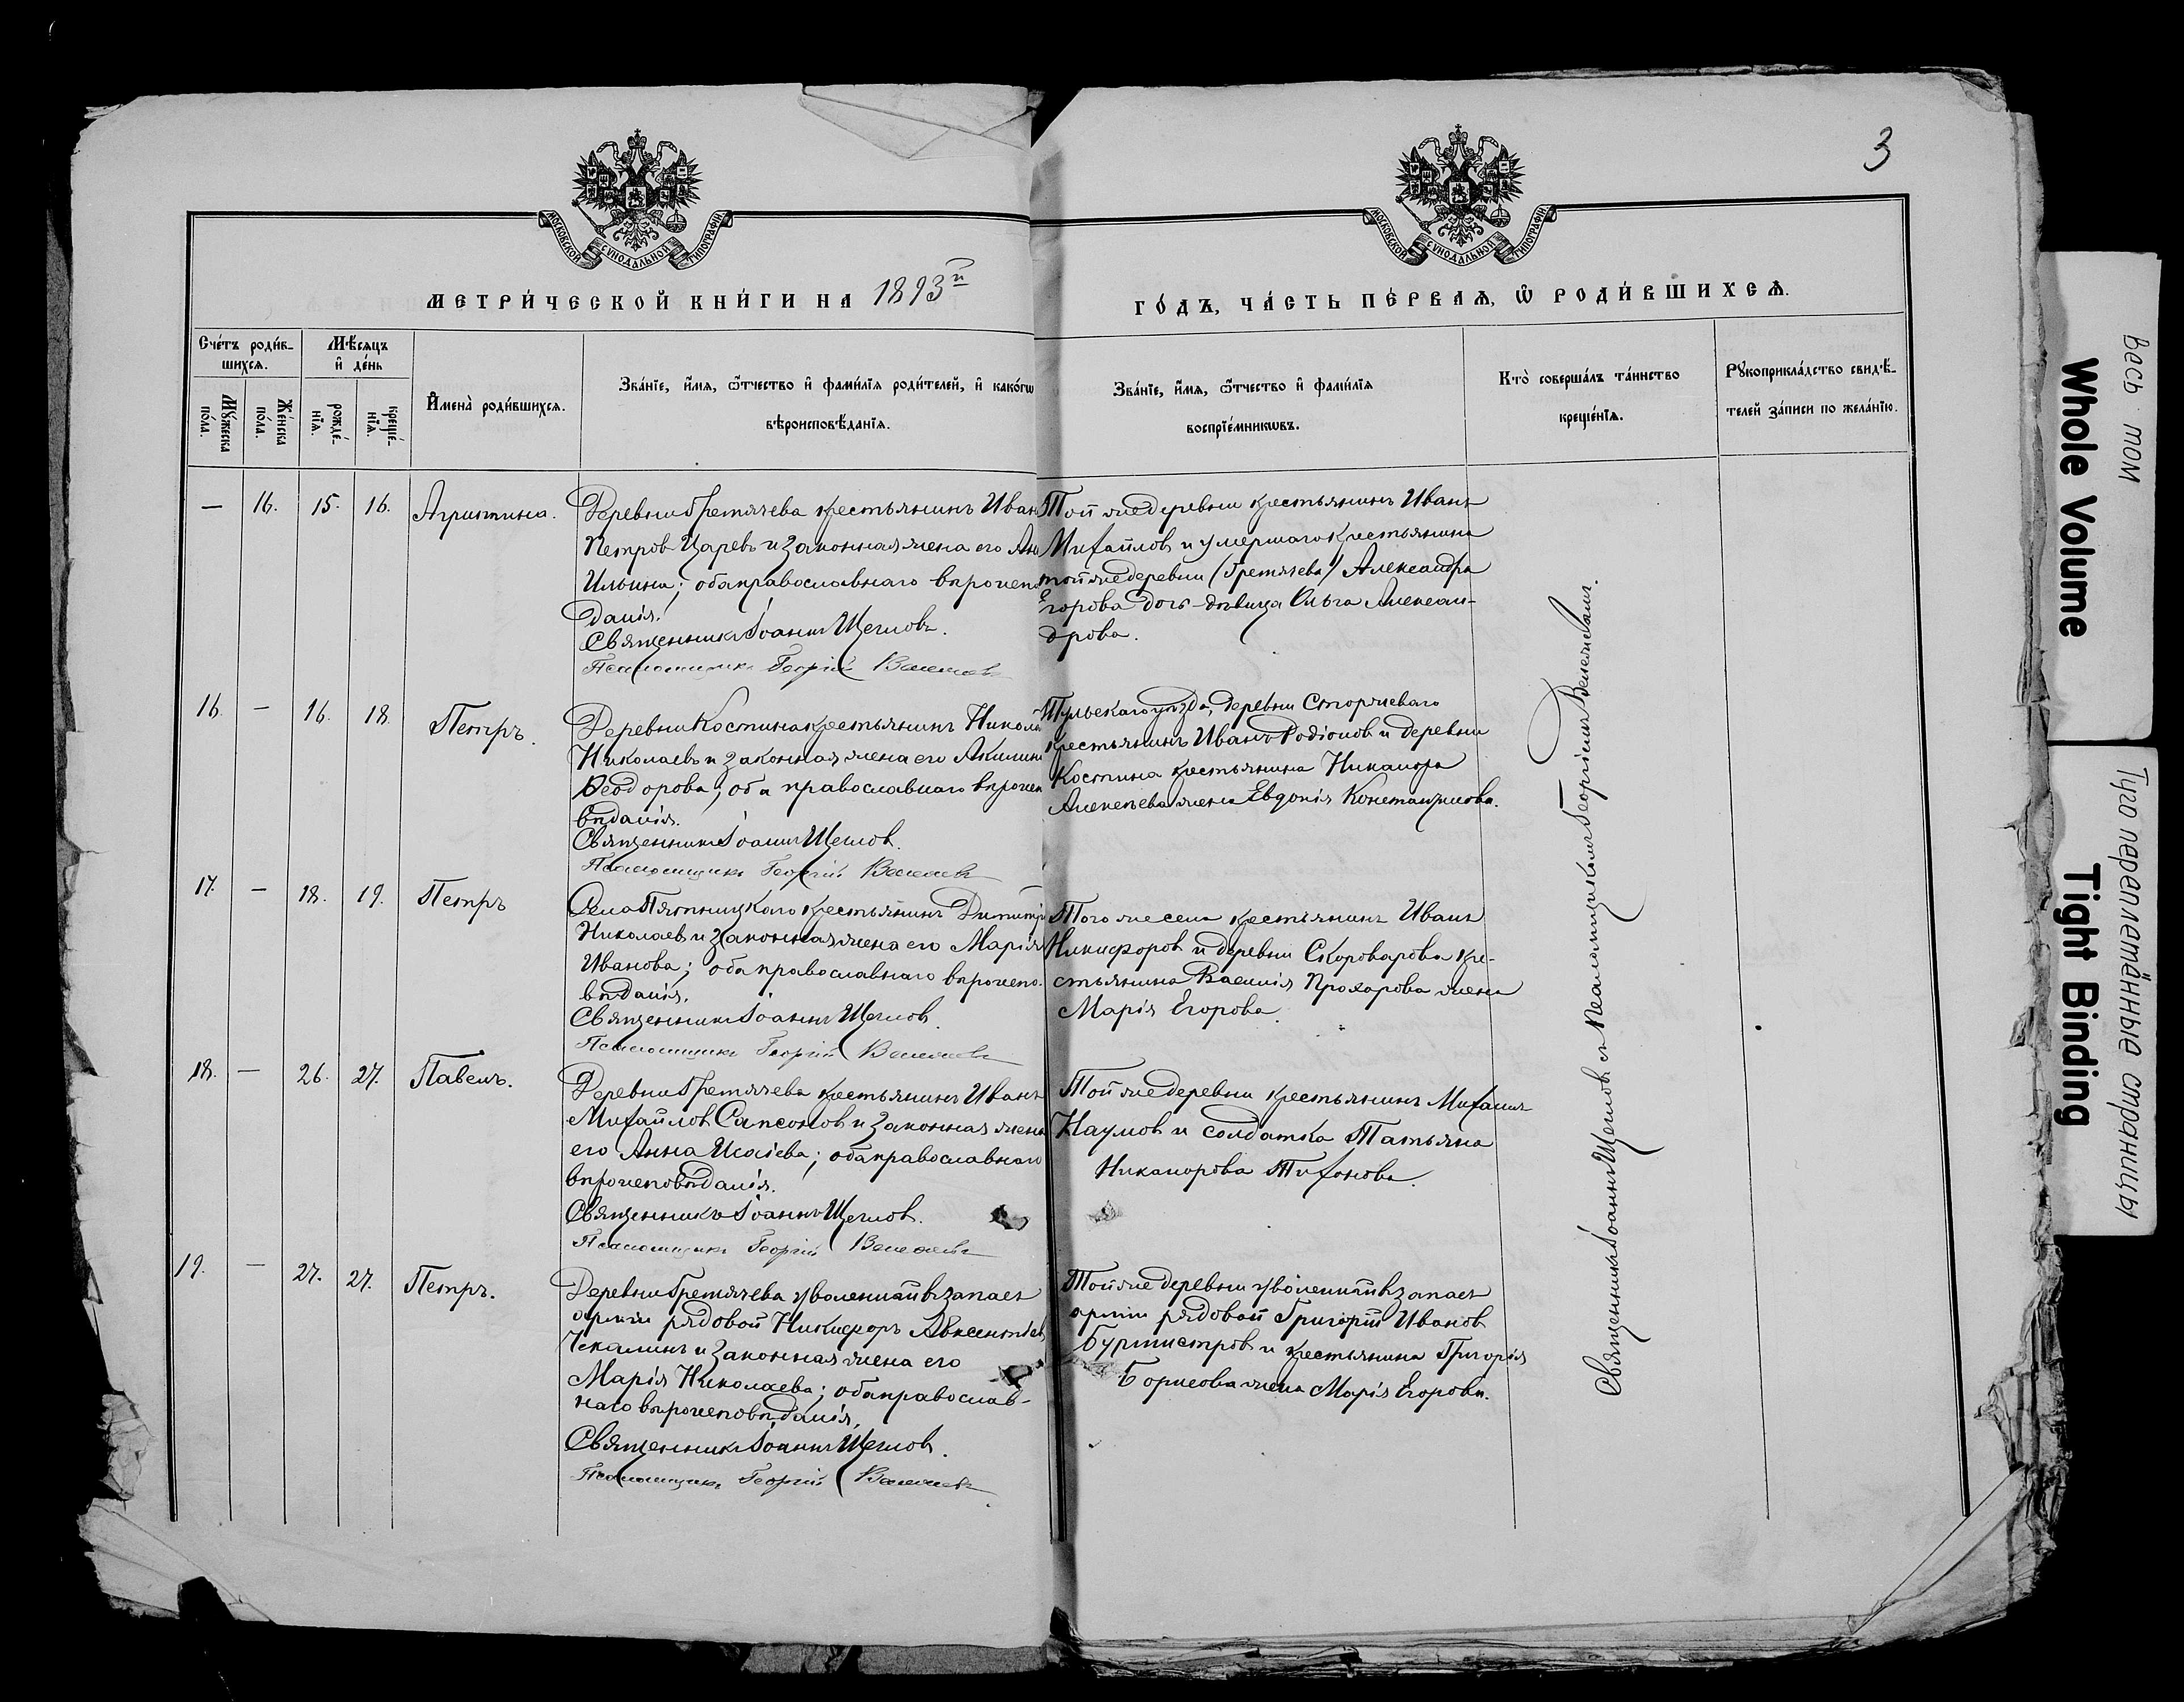 3
МОСКОВСКОЙ СѴНОДАЛЬНОЙ ТИПОГРАФІИ
МОСКОВСКОЙ СѴНОДАЛЬНОЙ ТИПОГРАФІИ
МЕТРИ́ЧЕСКОЙ КНИ́ГИ НА 1893й
ГО́ДЪ, ЧА́СТЬ ПЕ́РВАѦ, Ѡ҆ РОДИ́ВШИХСѦ.
Сче́тъ роди́в-
шихсѧ.
Мꙋ́жеска
по́ла.
Же́нска
по́ла.
Мѣ́сѧцъ
и҆ де́нь
рожде́-
нїѧ.
креще́-
нїѧ.
И҆мена̀ роди́вшихсѧ.
Зва́нїе, и҆́мѧ, ѻ҆́тчество и҆ фами́лїѧ роди́телей, и҆ како́гѡ
вѣроисповѣ́данїѧ.
Зва́нїе, и҆́мѧ, ѻ҆́тчество и҆ фами́лїѧ
воспрїе́мникѡвъ.
Кто̀ соверша́лъ та́инство
креще́нїѧ.
Рꙋкоприкла́дство свидѣ́-
телей за́писи по жела́нїю.
— 16. 15. 16. Агриппина.
Деревни Гремячева крестьянинъ Иван
Петров Царевъ и законная жена его Ан
Ильина; оба православнаго вѣроиспо
данія.
Священникъ Іоаннъ Щегловъ.
Псаломщикъ Георгій
Той же деревни крестьянинъ Иванъ
Михайлов и умершаго крестьянина
той же деревни (Гремячева) Александра
Егорова дочь-дѣвица Ольга Алексан-
дрова.
16. — 16. 18. Петръ.
Деревни Костина крестьянинъ Никол
Николаевъ и законная жена его Акилин
Ѳеодорова; оба православнаго вѣроиспо
вѣданія.
Священникъ Іоаннъ Щеглов.
Псаломщикъ Георгій
Тульскаго уѣзда, деревни Сторожеваго
крестьянинъ Иванъ Родіонов и деревни
Костина крестьянина Никанора
Алексѣева жена Евдокія Константинова.
17. — 18. 19. Петръ
Села Пятницкаго крестьянинъ Димитрі
Николаевъ и законная жена его Марія
Иванова; оба православнаго вѣроиспо-
вѣданія.
Священникъ Іоаннъ Щеглов.
Псаломщикъ Георгій
Того же села крестьянинъ Иванъ
Никифоров и деревни Скороварова кре-
стьянина Василія Прохорова жена
Марія Егорова.
18. — 26. 27. Павелъ.
Деревни Гремячева крестьянинъ Иванъ
Михайлов Сапсонов и законная жена
его Анна Исаіева; оба православнаго
вѣроисповѣданія.
Священникъ Іоаннъ Щеглов.
Псаломщикъ Георгій
Той же деревни крестьянинъ Михаилъ
Наумов и солдатка Татьяна
Никанорова Тихонова.
19. — 27. 27. Петръ.
Деревни Гремячева уволенный въ запасъ
арміи рядовой Никифоръ Авксентіев
Чекалинъ и законная жена его
Марія Николаева; оба православ-
наго вѣроисповѣданія.
Священникъ Іоаннъ Щеглов.
Псаломщикъ Георгій
Той же деревни уволенный въ запасъ
арміи рядовой Григорій Иванов
Бурмистров и крестьянина Григорія
Борисова жена Марія Егорова.
Священникъ Іоаннъ Щеглов съ псаломщикомъ Георгіемъ
Весь том
Whole Volume
Туго переплетённые страницы
Tight Binding